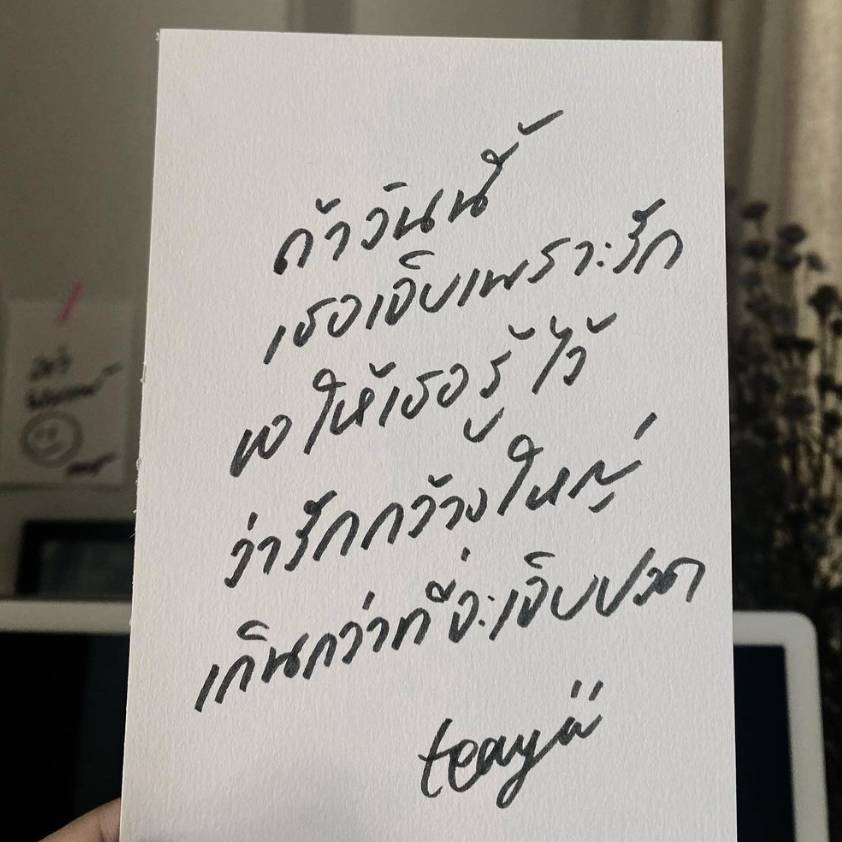 ถ้าวันนี้
เธอเจ็บเพราะรัก
ขอให้เธอรู้ไว้
ว่ารักกว้างใหญ่
เกินกว่าที่จะเจ็บปวด
teayii